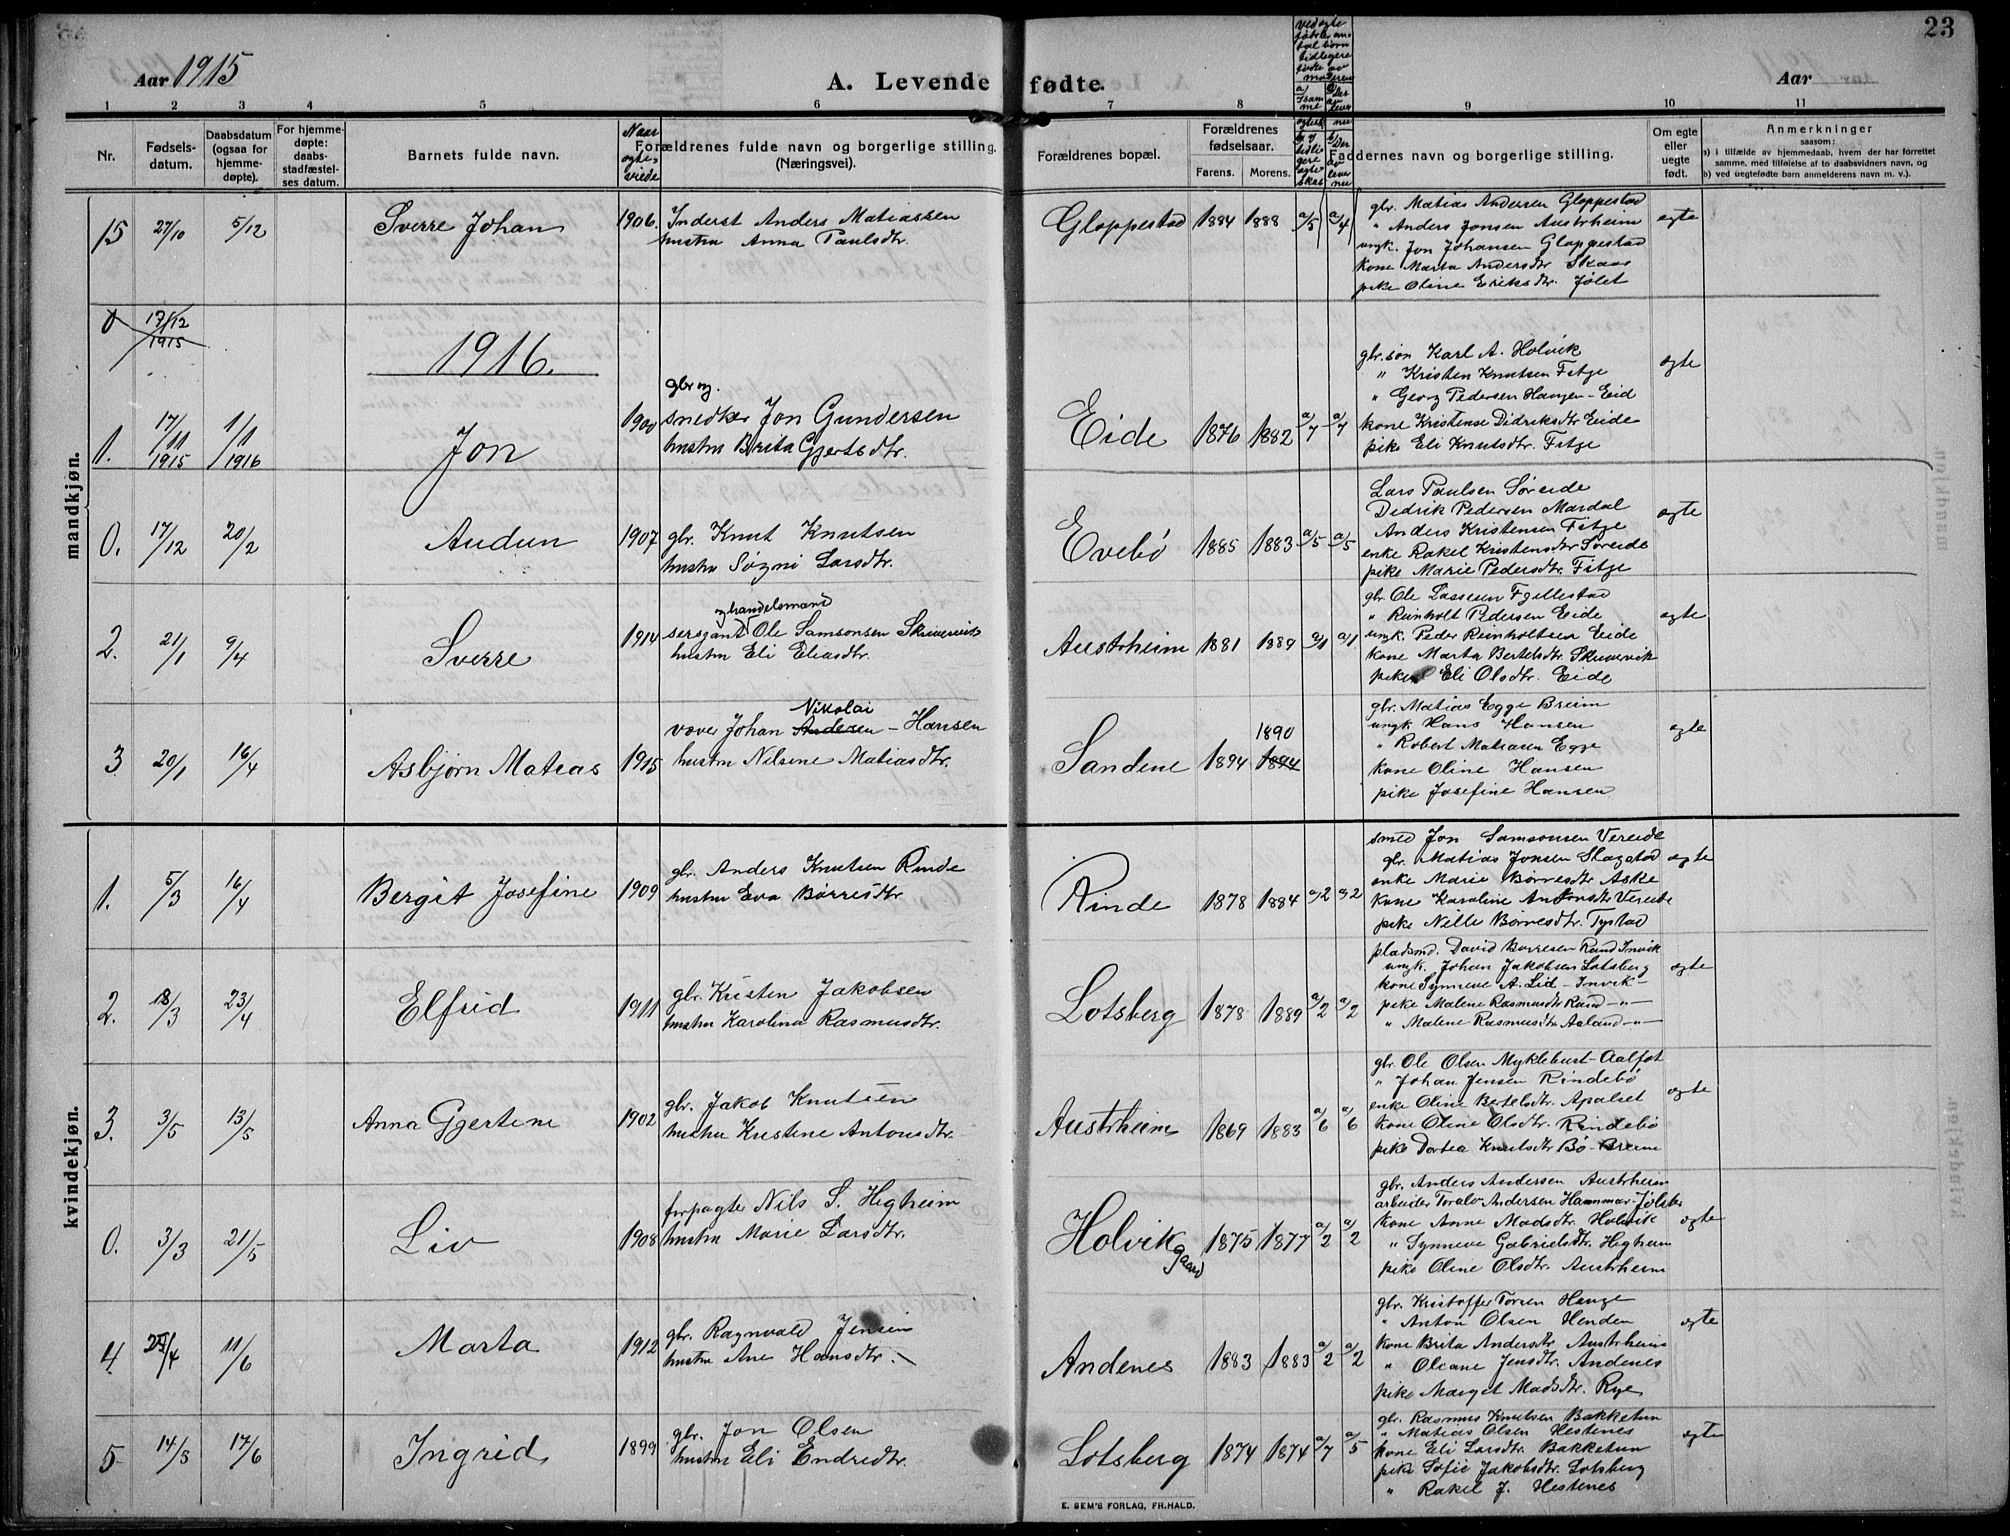 23
Aar 1915
A. Levende fødte.
Aar
1 2 3 4 5 6 7 8 9 10 11
Nr.
Fødsels-
datum.
Daabsdatum
(ogsaa for
hjemme-
døpte).
For hjemme-
døpte:
daabs-
stadfæstel-
ses datum.
Barnets fulde navn.
Naar
egte-
viede
Forældrenes fulde navn og borgerlige stilling.
(Næringsvei).
Forældrenes bopæl.
Forældrenes
fødselsaar.
Farens. Morens.
ved egte
født angives an-
tal børn
tidligere
fødte av
moderen
Faddernes navn og borgerlige stilling.
Om egte
eller
uegte
født.
Anmerkninger
saasom:
a) i tilfælde av hjemmedaab, hvem der har forrettet
samme, med tilføielse af to daabsvidners navn, og
b) ved uegtefødte barn anmelderens navn m. v.).
mandkjøn.
15 27/10 5/12 Sverre Johan 1906. Inderst Anders Matiassen
hustru Anna Paulsdtr.
Gloppestad 1884 1888 a/5 a/4
gbr. Matias Andersen Gloppestad
" Anders Jonsen Austrheim
ungk. Jon Johansen Gloppestad
kone Marta Andersdtr. Skaas
pike Oline Eriksdtr. Jølet
egte
0 17/12 1915
1916.
1. 17/11 1915 1/1 1916 Jon 1900 gbr og
snedker Jon Gundersen
hustru Brita Gjertsdtr.
Eide 1876 1882 a/7 a/7
gbr. søn Karl A. Holvik
" Kristen Knutsen Fitje
" Georg Pedersen Haugen - Eid
kone Kristense Didriksdtr Eide
pike Eli Knutsdtr. Fitje
egte
0. 17/12 20/2 Audun 1907 gbr. Knut Knutsen
hustru Søgni Larsdtr.
Evebø 1885 1883 a/5 a/5
Lars Paulsen Søreide
Didrik Pedersen Mardal
Anders Kristensen Fitje
enke Rakel Kristensdtr Søreide
pike Marie Pedersdtr. Fitje
egte
2. 21/1 9/4 Sverre 1914 og handelsmand
sersgant Ole Samsonsen Skrivervik
hustru Eli Eliasdtr.
Austrheim 1881 1889 a/1 a/1
gbr. Ole Lassesen Fjellestad
" Reinholt Pedersen Eide
ungk. Peder Reinholtsen Eide
kone Marta Bertelsdtr. Skrivervik
pike Eli Olsdtr. Eide
egte
3 20/1 16/4 Asbjørn Matias 1915 Nikolai
væver Johan Andersen - Hansen
hustru Nilsine Matiasdtr.
Sandene 1894 1890 1894
gbr. Matias Egge Breim
ungk Hans Hansen
" Robert Matiasen Egge
kone Oline Hansen
pike Josefine Hansen
egte
kvindekjøn.
1. 5/3 16/4 Bergit Josefine 1909 gbr. Anders Knutsen Rinde
hustru Eva Børresdtr
Rinde 1878 1884 a/2 a/2
smed Jon Samsonsen Vereide
gbr. Matias Jonsen Slagstad
enke Marie Børresdtr Aske
kone Karoline Antonsdtr Vereide
pike Nille Børresdtr. Tystad
egte
2. 18/3 23/4 Elfrid 1911 gbr. Kristen Jakobsen
hustru Karolina Rasmusdtr.
Lotsberg 1878 1889 a/2 a/2
pladsmd. David Børresen Rand Invik
ungk. Johan Jakobsen Lotsberg
kone Synneve A. Lid - Invik
pike Malene Rasmusdtr Rand -"-
" Malene Rasmusdtr Aaland -"-
egte
3. 3/5 13/5 Anna Gjertine 1902 gbr. Jakob Knutsen
hustru Kristine Antonsdtr.
Austrheim 1869 1883 a/6 a/6
gbr. Ole Olsen Myklebust - Aalfot
" Johan Jensen Rindebø
enke Oline Bertelsdtr. Apalset
kone Oline Olsdtr. Rindebø
pike Dortea Knutsdtr Bø - Breim
egte
0. 3/3 21/5 Liv 1908 forpagter Nils S. Hegheim
hustru Marie Larsdtr.
Holvik gaard 1875 1877 a/2 a/2
gbr. Anders Andersen Austrheim
arbeider Toralv Andersen Hammar - Jølster
kone Anne Madsdtr. Holvik
" Synneve Gabrielsdtr. Hegheim
pike Oline Olsdtr. Austrheim
egte
4 /4 11/6 Marta 1912 gbr. Ragnvald Jensen
hustru Ane Hansdtr.
Andenes 1883 1883 a/2 a/2
gbr. Kristoffer Torsen Hauge
" Anton Olsen Henden
kone Brita Andersdtr Austrheim
" Oleane Jensdtr. Andenes
pike Marget Madsdtr. Rye
egte
5 14/5 17/6 Ingrid 1899 gbr. Jon Olsen
hustru Eli Endredtr.
Lotsberg 1874 1874 a/7 a/5
gbr. Rasmus Knutsen Bakketun
" Matias Olsen Hestenes
kone Eli Larsdtr. Bakketun
pike Sofie Jakobsdtr. Lotsberg
" Rakel J. Hestenes
egte
E. SEM'S FORLAG, FR.HALD.